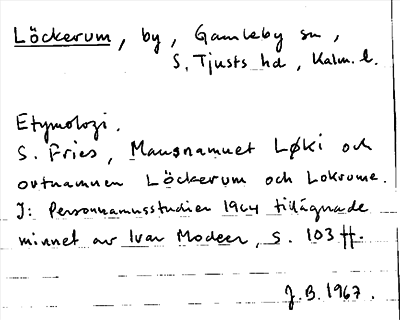 Löckerum, by, Gamleby sn,
S. Tjusts hd, Kalm. l.
Etymologi.
S. Fries, Mansnamnet Løki och
ortnamnen Löckerum och Lokrume.
I: Personnamnsstudier 1964 tillägnade
minnet av Ivar Modéer, s. 103 ff.
J.B. 1967.